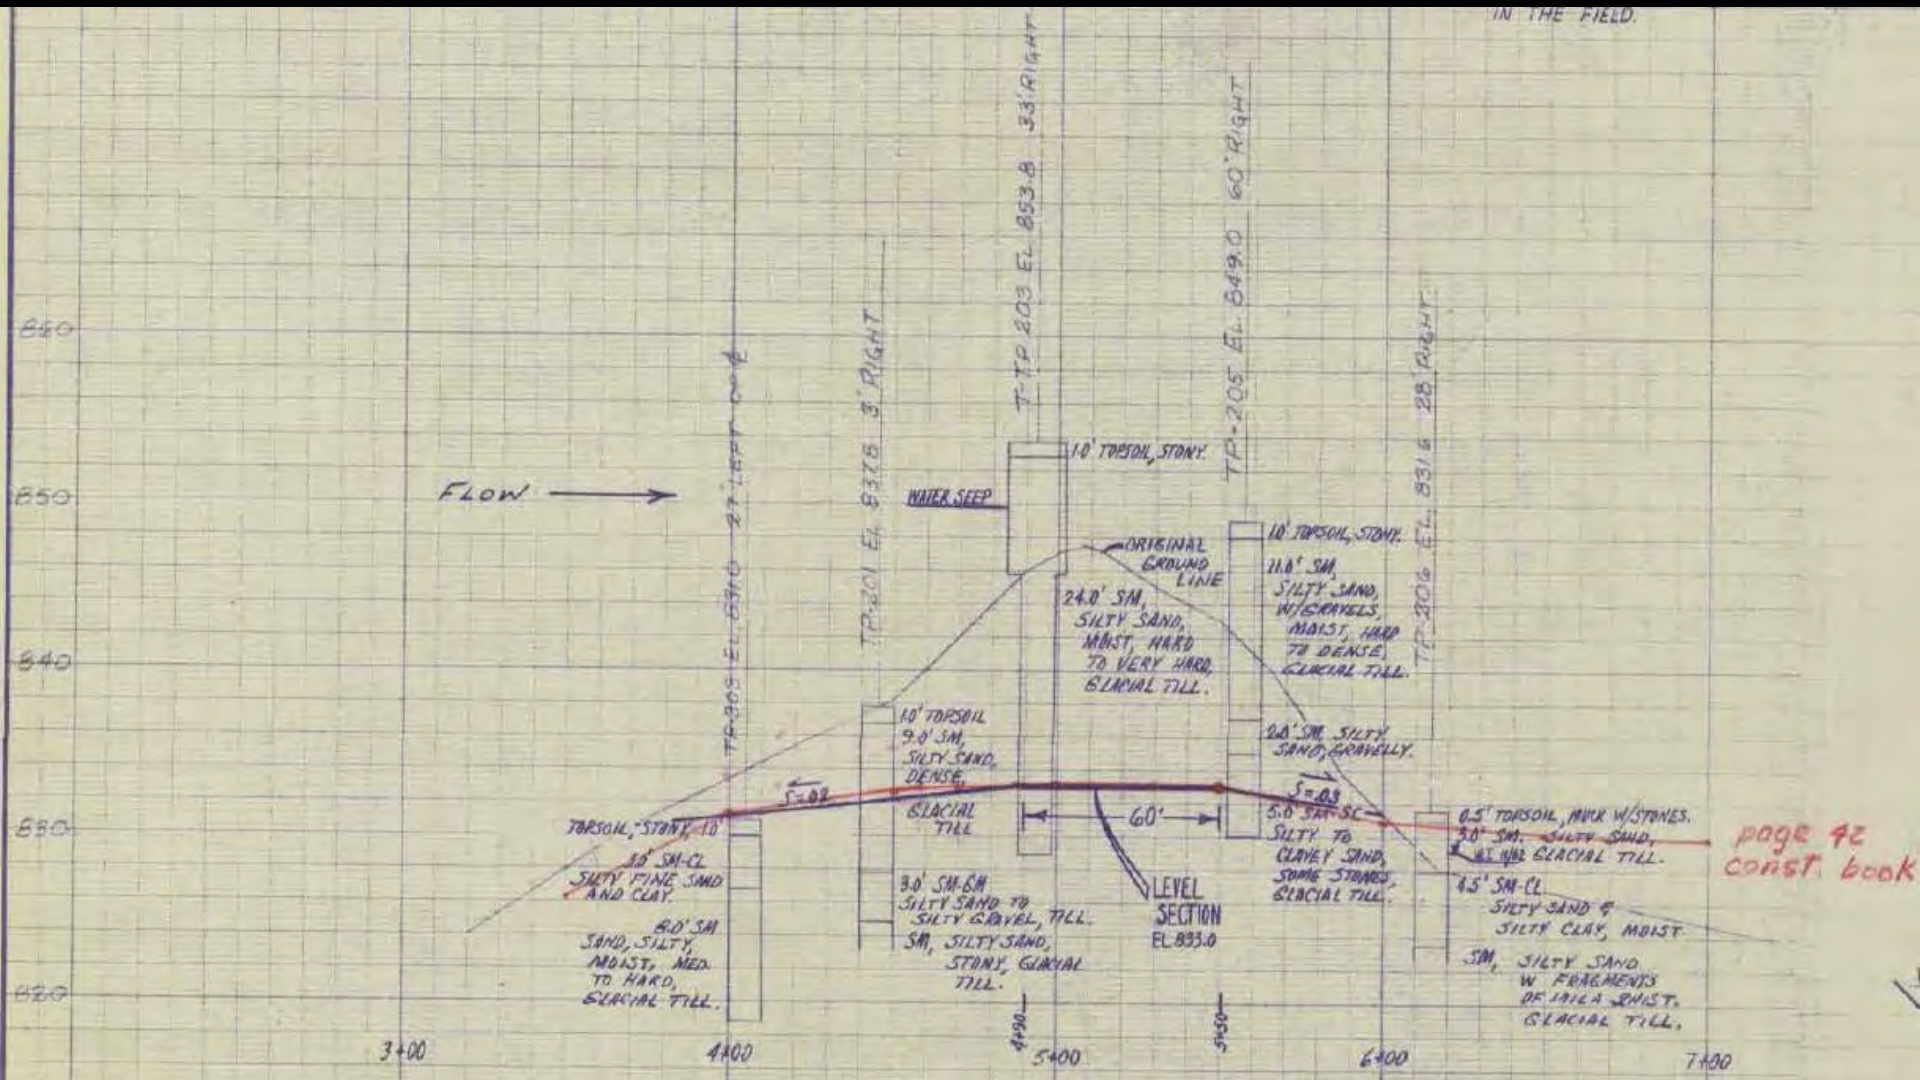 IN THE FIELD.
T-TP 203 EL 853.8 33' RIGHT
TP-205 EL 849.0 60' RIGHT
TP-206 EL. 831.6 28' RIGHT
TP-201 EL 837.8 3' RIGHT
27' LEFT
860
850
840
830
820
FLOW
WATER SEEP
1.0' TOPSOIL, STONY.
ORIGINAL
GROUND
LINE
24.0' SM,
SILTY SAND,
MOIST, HARD
TO VERY HARD,
GLACIAL TILL.
1.0' TOPSOIL, STONY.
11.0' SM,
SILTY SAND,
W/GRAVELS,
MOIST, HARD
TO DENSE,
GLACIAL TILL.
2.0' SM, SILTY
SAND, GRAVELLY.
5.0' SM-SC
SILTY TO
CLAYEY SAND,
SOME STONES,
GLACIAL TILL.
1.0' TOPSOIL
9.0' SM,
SILTY SAND,
DENSE,
GLACIAL
TILL
3.0' SM-GM
SILTY SAND TO
SILTY GRAVEL, TILL.
SM, SILTY SAND,
STONY, GLACIAL
TILL.
S=.02
S=.03
60'
LEVEL
SECTION
EL 833.0
TOPSOIL, STONY, 1.0'
SM-CL
SILTY FINE SAND
AND CLAY.
8.0' SM
SAND, SILTY,
MOIST, MED.
TO HARD,
GLACIAL TILL.
0.5' TOPSOIL, MUCK W/STONES.
3.0' SM. SILTY SAND,
GLACIAL TILL.
4.5' SM-CL
SILTY SAND &
SILTY CLAY, MOIST.
SM, SILTY SAND
W FRAGMENTS
OF MICA SHIST.
GLACIAL TILL.
page 42
const. book
4+90
5+50
3+00
4+00
5+00
6+00
7+00